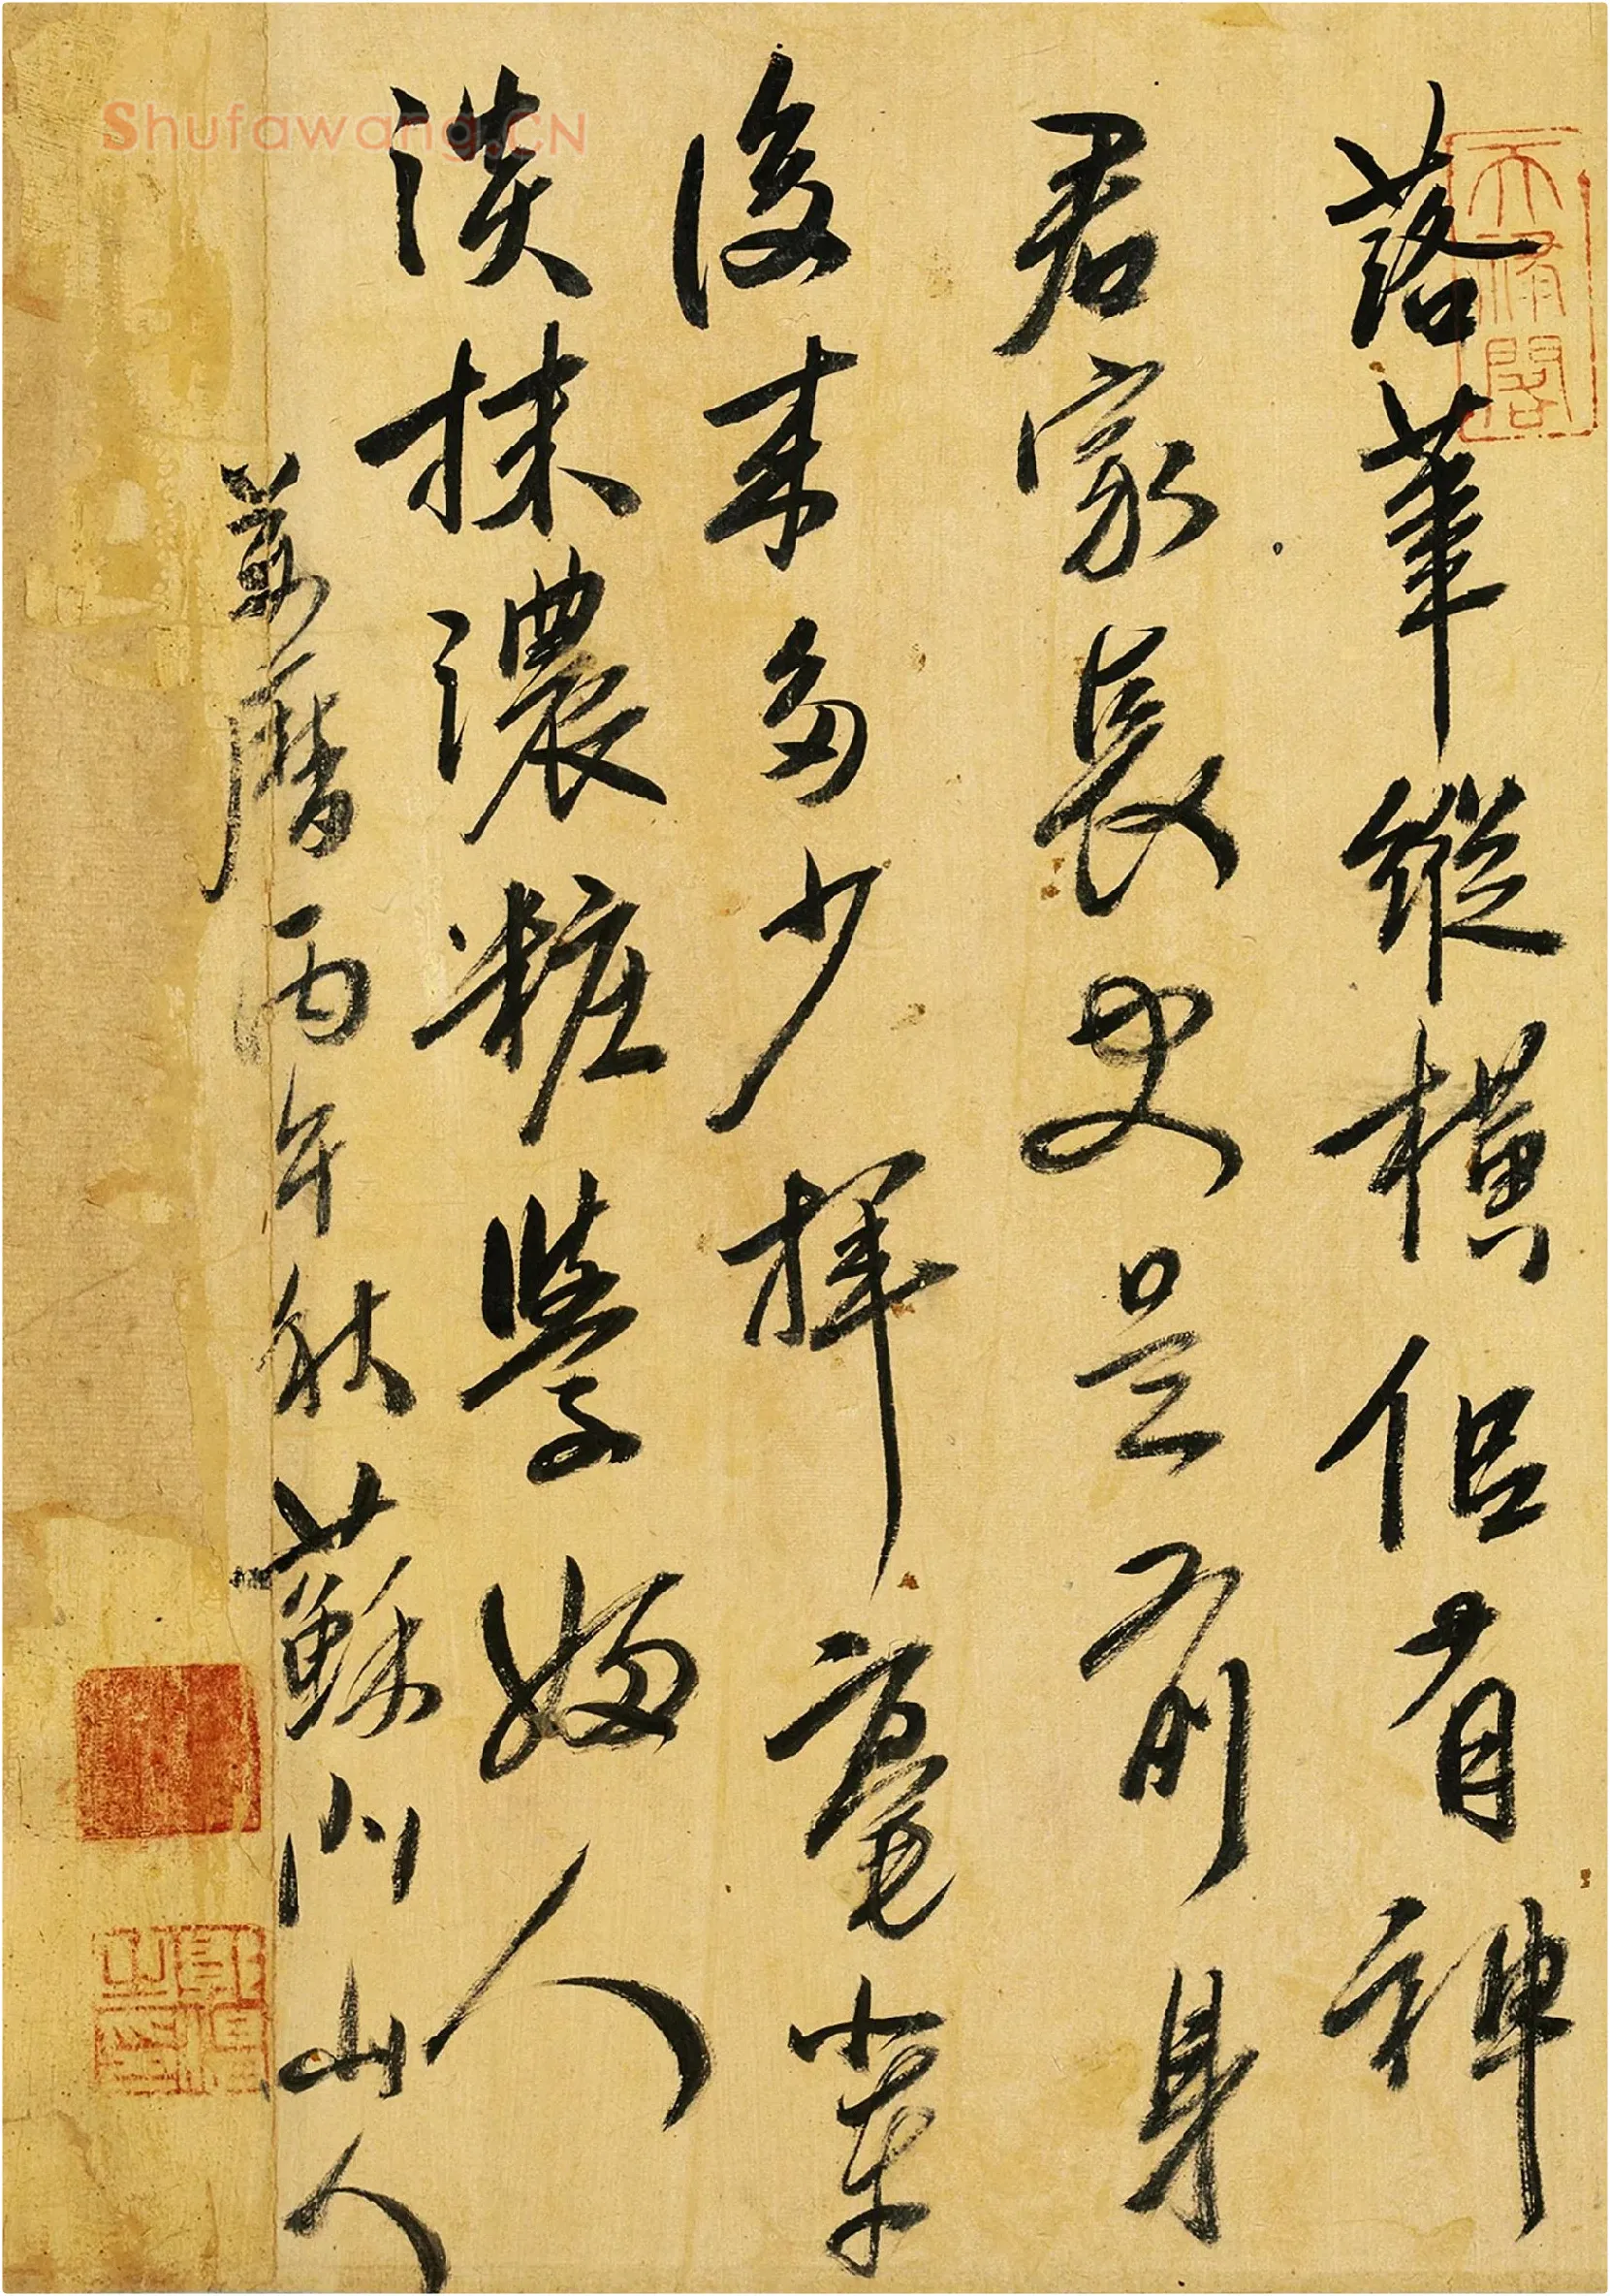 落筆縱橫侶有神
君家長史是前身
後来多少揮毫輩
淡抹濃粧學婦人
萬曆丙午秋蘇川山人
天繪閣
Shufawang.CN